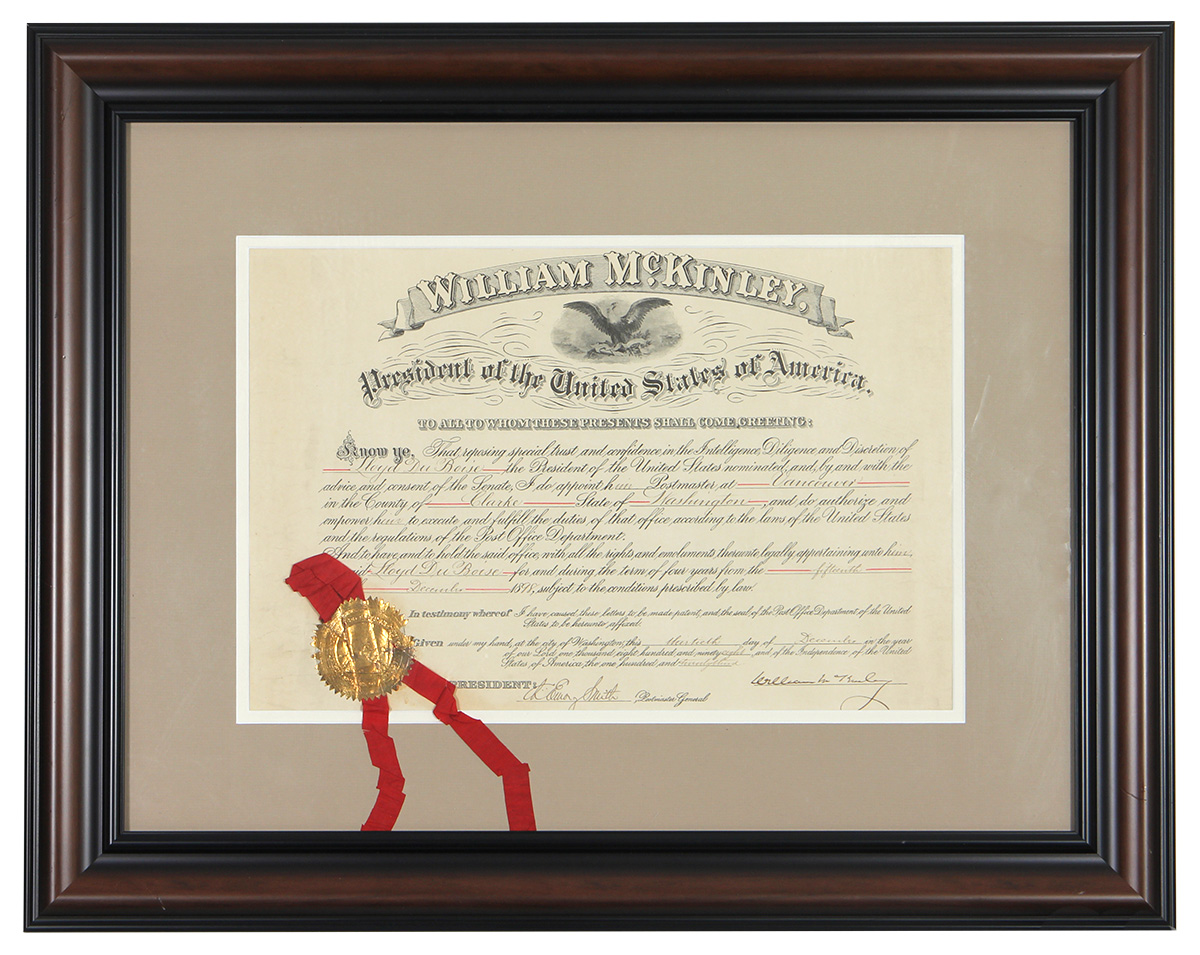 WILLIAM McKINLEY,
President of the United States of America.
TO ALL TO WHOM THESE PRESENTS SHALL COME, GREETING:
Know ye, That reposing special trust and confidence in the Intelligence, Diligence and Discretion of
Lloyd Du Boise, the President of the United States nominated, and, by and with the
advice and consent of the Senate, I do appoint him Postmaster at Vancouver
in the County of Clarke State of Washington, and do authorize and
empower him to execute and fulfill the duties of that office according to the laws of the United States
and the regulations of the Post Office Department:
And to have and to hold the said office, with all the rights and emoluments thereunto legally appertaining unto him,
Lloyd Du Boise for and during the term of four years from the fifteenth
December 1898, subject to the conditions prescribed by law.
In testimony whereof I have caused these letters to be made patent, and the seal of the Post Office Department of the United
States to be hereunto affixed.
Given under my hand, at the city of Washington, this thirtieth day of December in the year
of our Lord one thousand, eight hundred and ninety eight, and of the Independence of the United
States of America, the one hundred and twenty third
PRESIDENT: William McKinley
Ch Emory Smith, Postmaster General